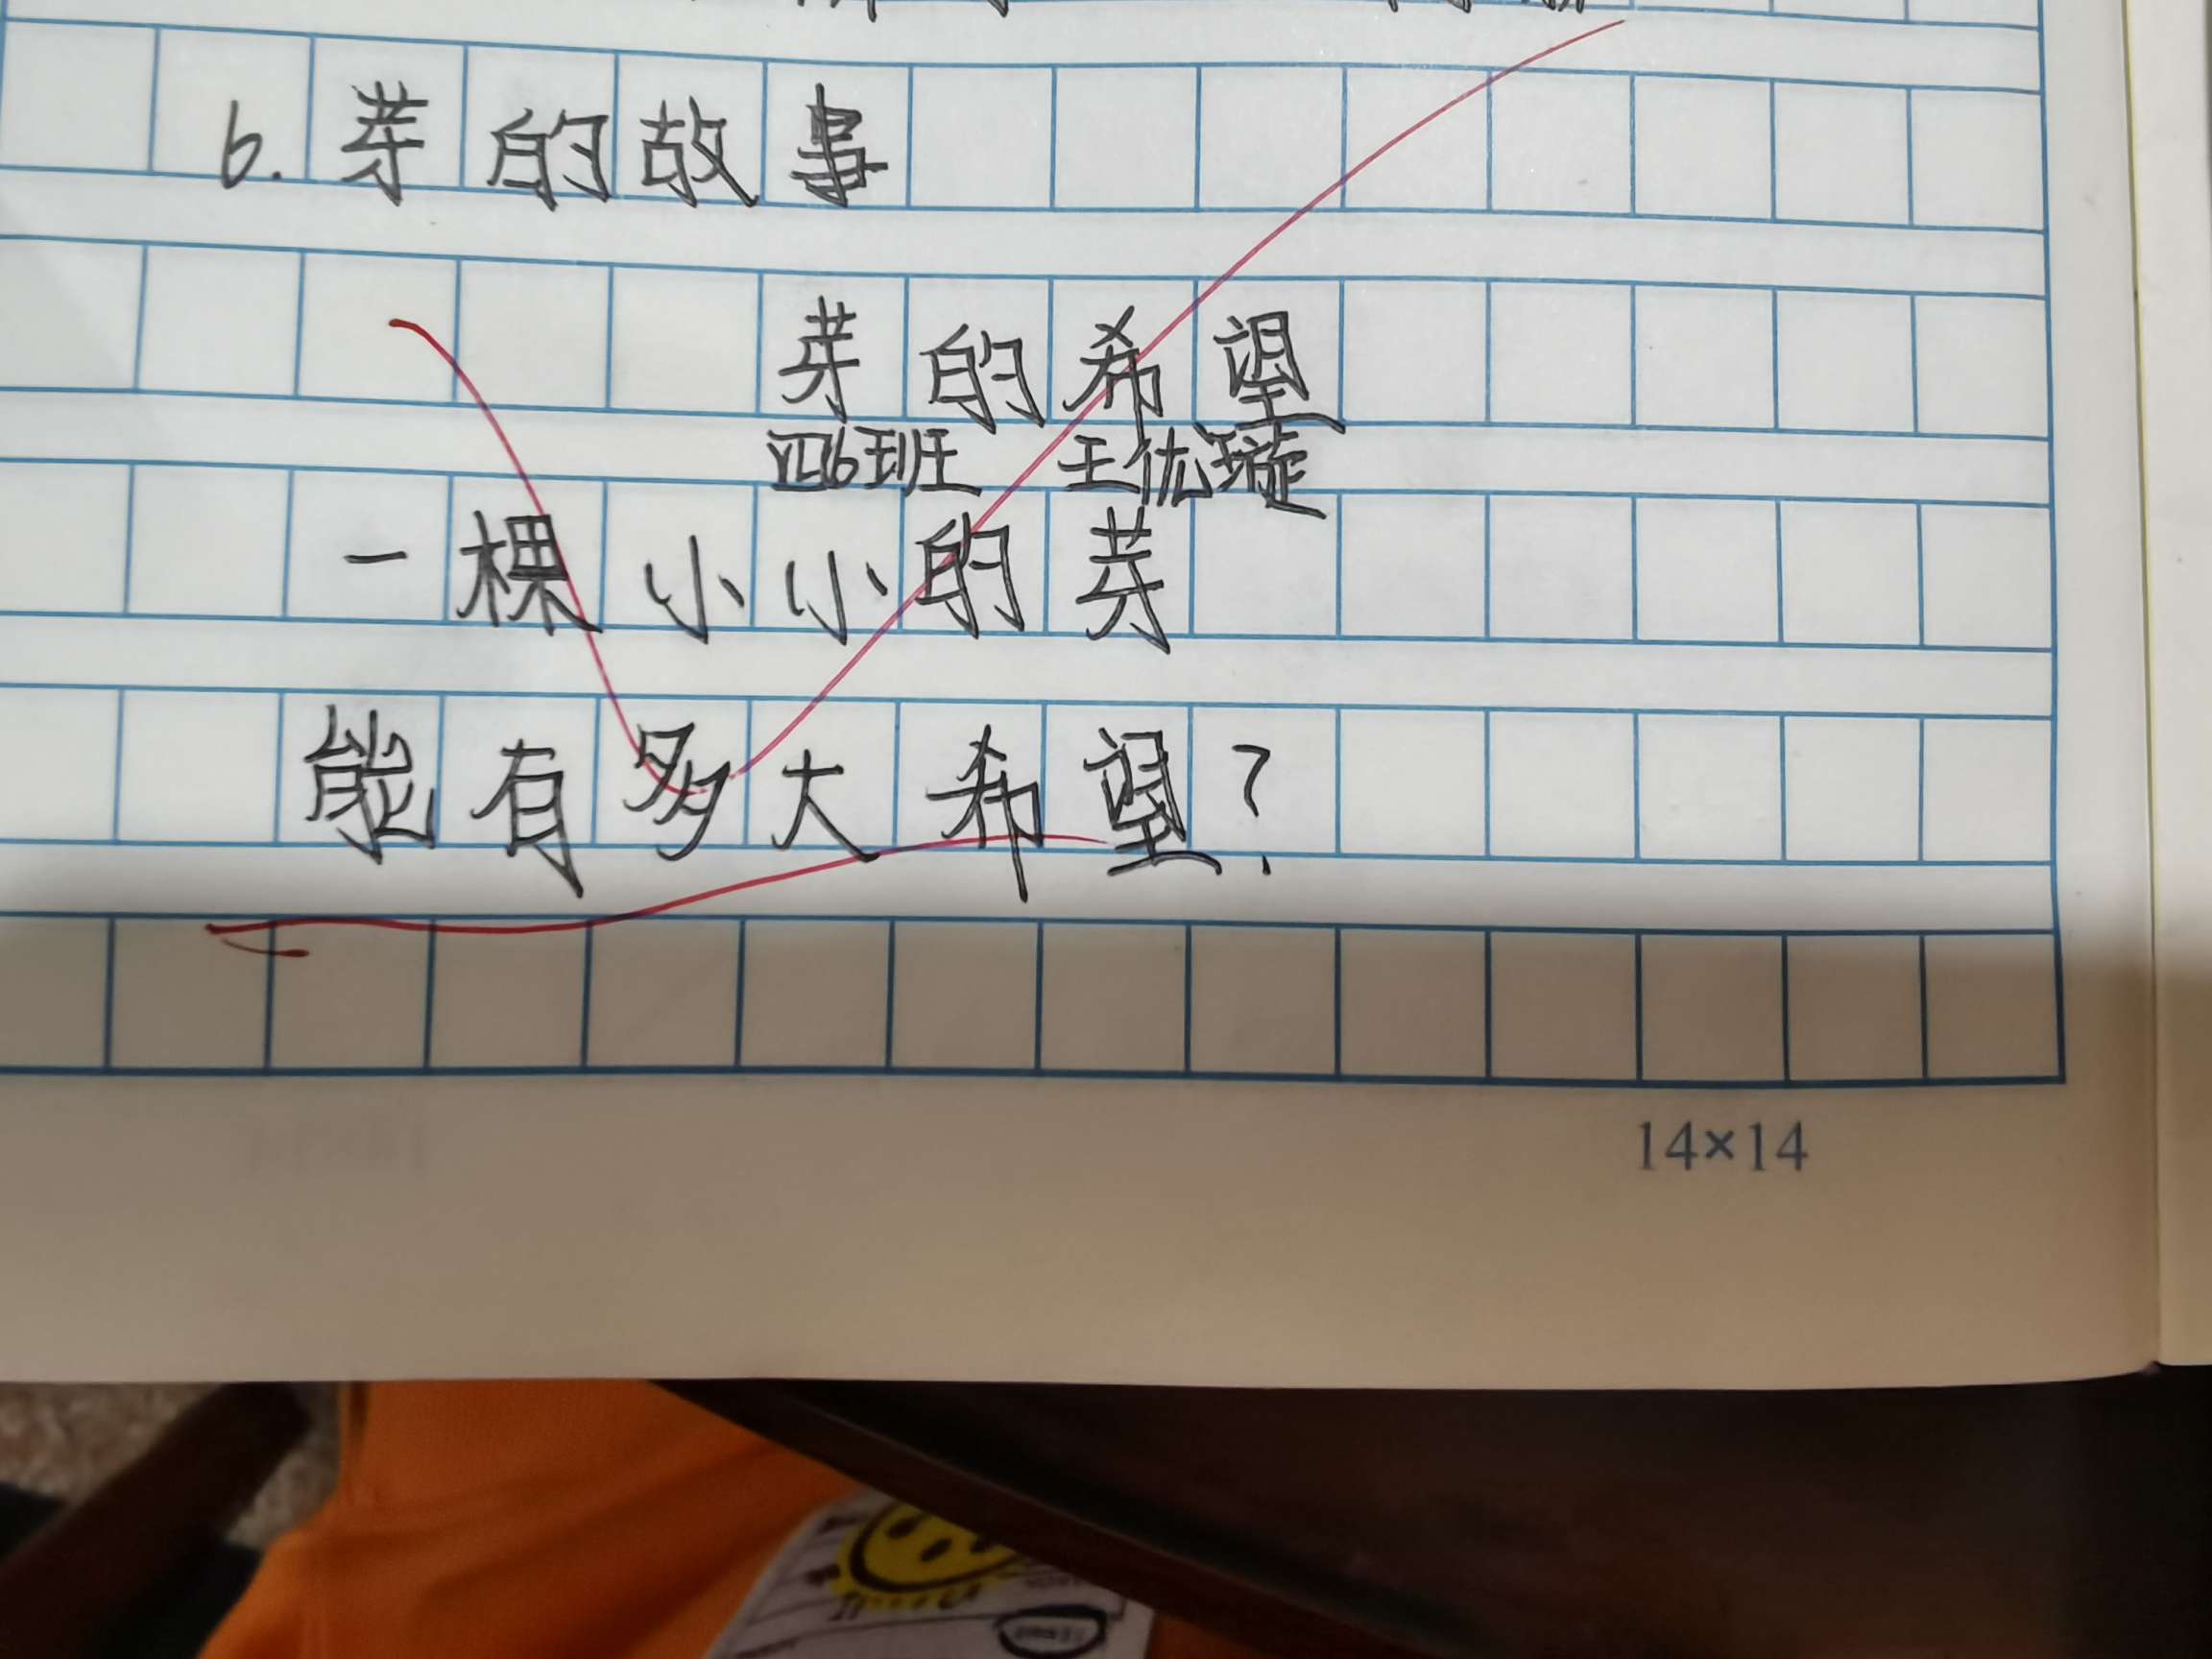 6.芽的故事
芽的希望
四6班 王优璇
一棵小小的芽
能有多大希望?
14×14